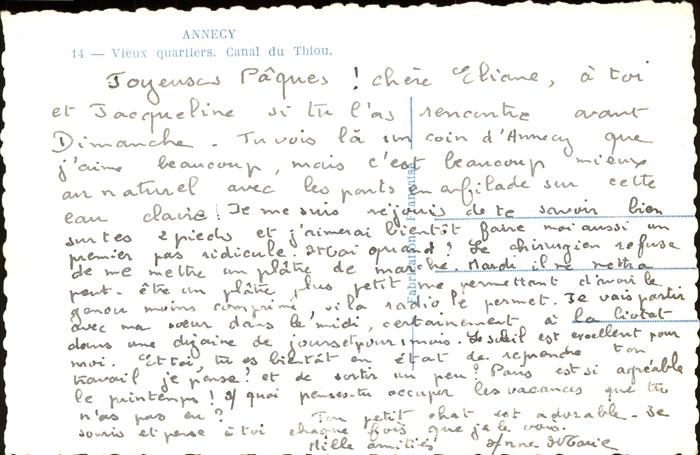 ANNECY
14 — Vieux quartiers. Canal du Thiou.
Joyeuses Pâques ! chère Eliane, à toi
et Jacqueline si tu l'as rencontre avant
Dimanche. Tu vois là un coin d'Annecy que
j'aime beaucoup, mais c'est beaucoup mieux
au naturel avec les ponts en enfilade sur cette
eau claire ! Je me suis réjouis de te savoir bien
sur tes 2 pieds et j'aimerai bientôt faire moi aussi un
premier pas ridicule. Moi quand ? Le chirurgien refuse
de me mettre un plâtre de marche. Mardi il me mettra
peut-être un plâtre plus petit me permettant d'avoir le
genou moins comprimé, si la radio le permet. Je vais partir
avec ma sœur dans le midi, certainement à la Ciotat
dans une dizaine de jours et pour 1 mois. Le soleil est excellent pour
moi. Et toi, tu es bientôt en état de reprendre ton
travail je pense ? et de sortir un peu ? Paris est si agréable
le printemps ! à quoi penses-tu occuper les vacances que tu
n'as pas eu ? Ton petit chat est adorable. Je
souris et pense à toi chaque fois que je le vois.
Mille amitiés Anne Marie
Fabrication Française